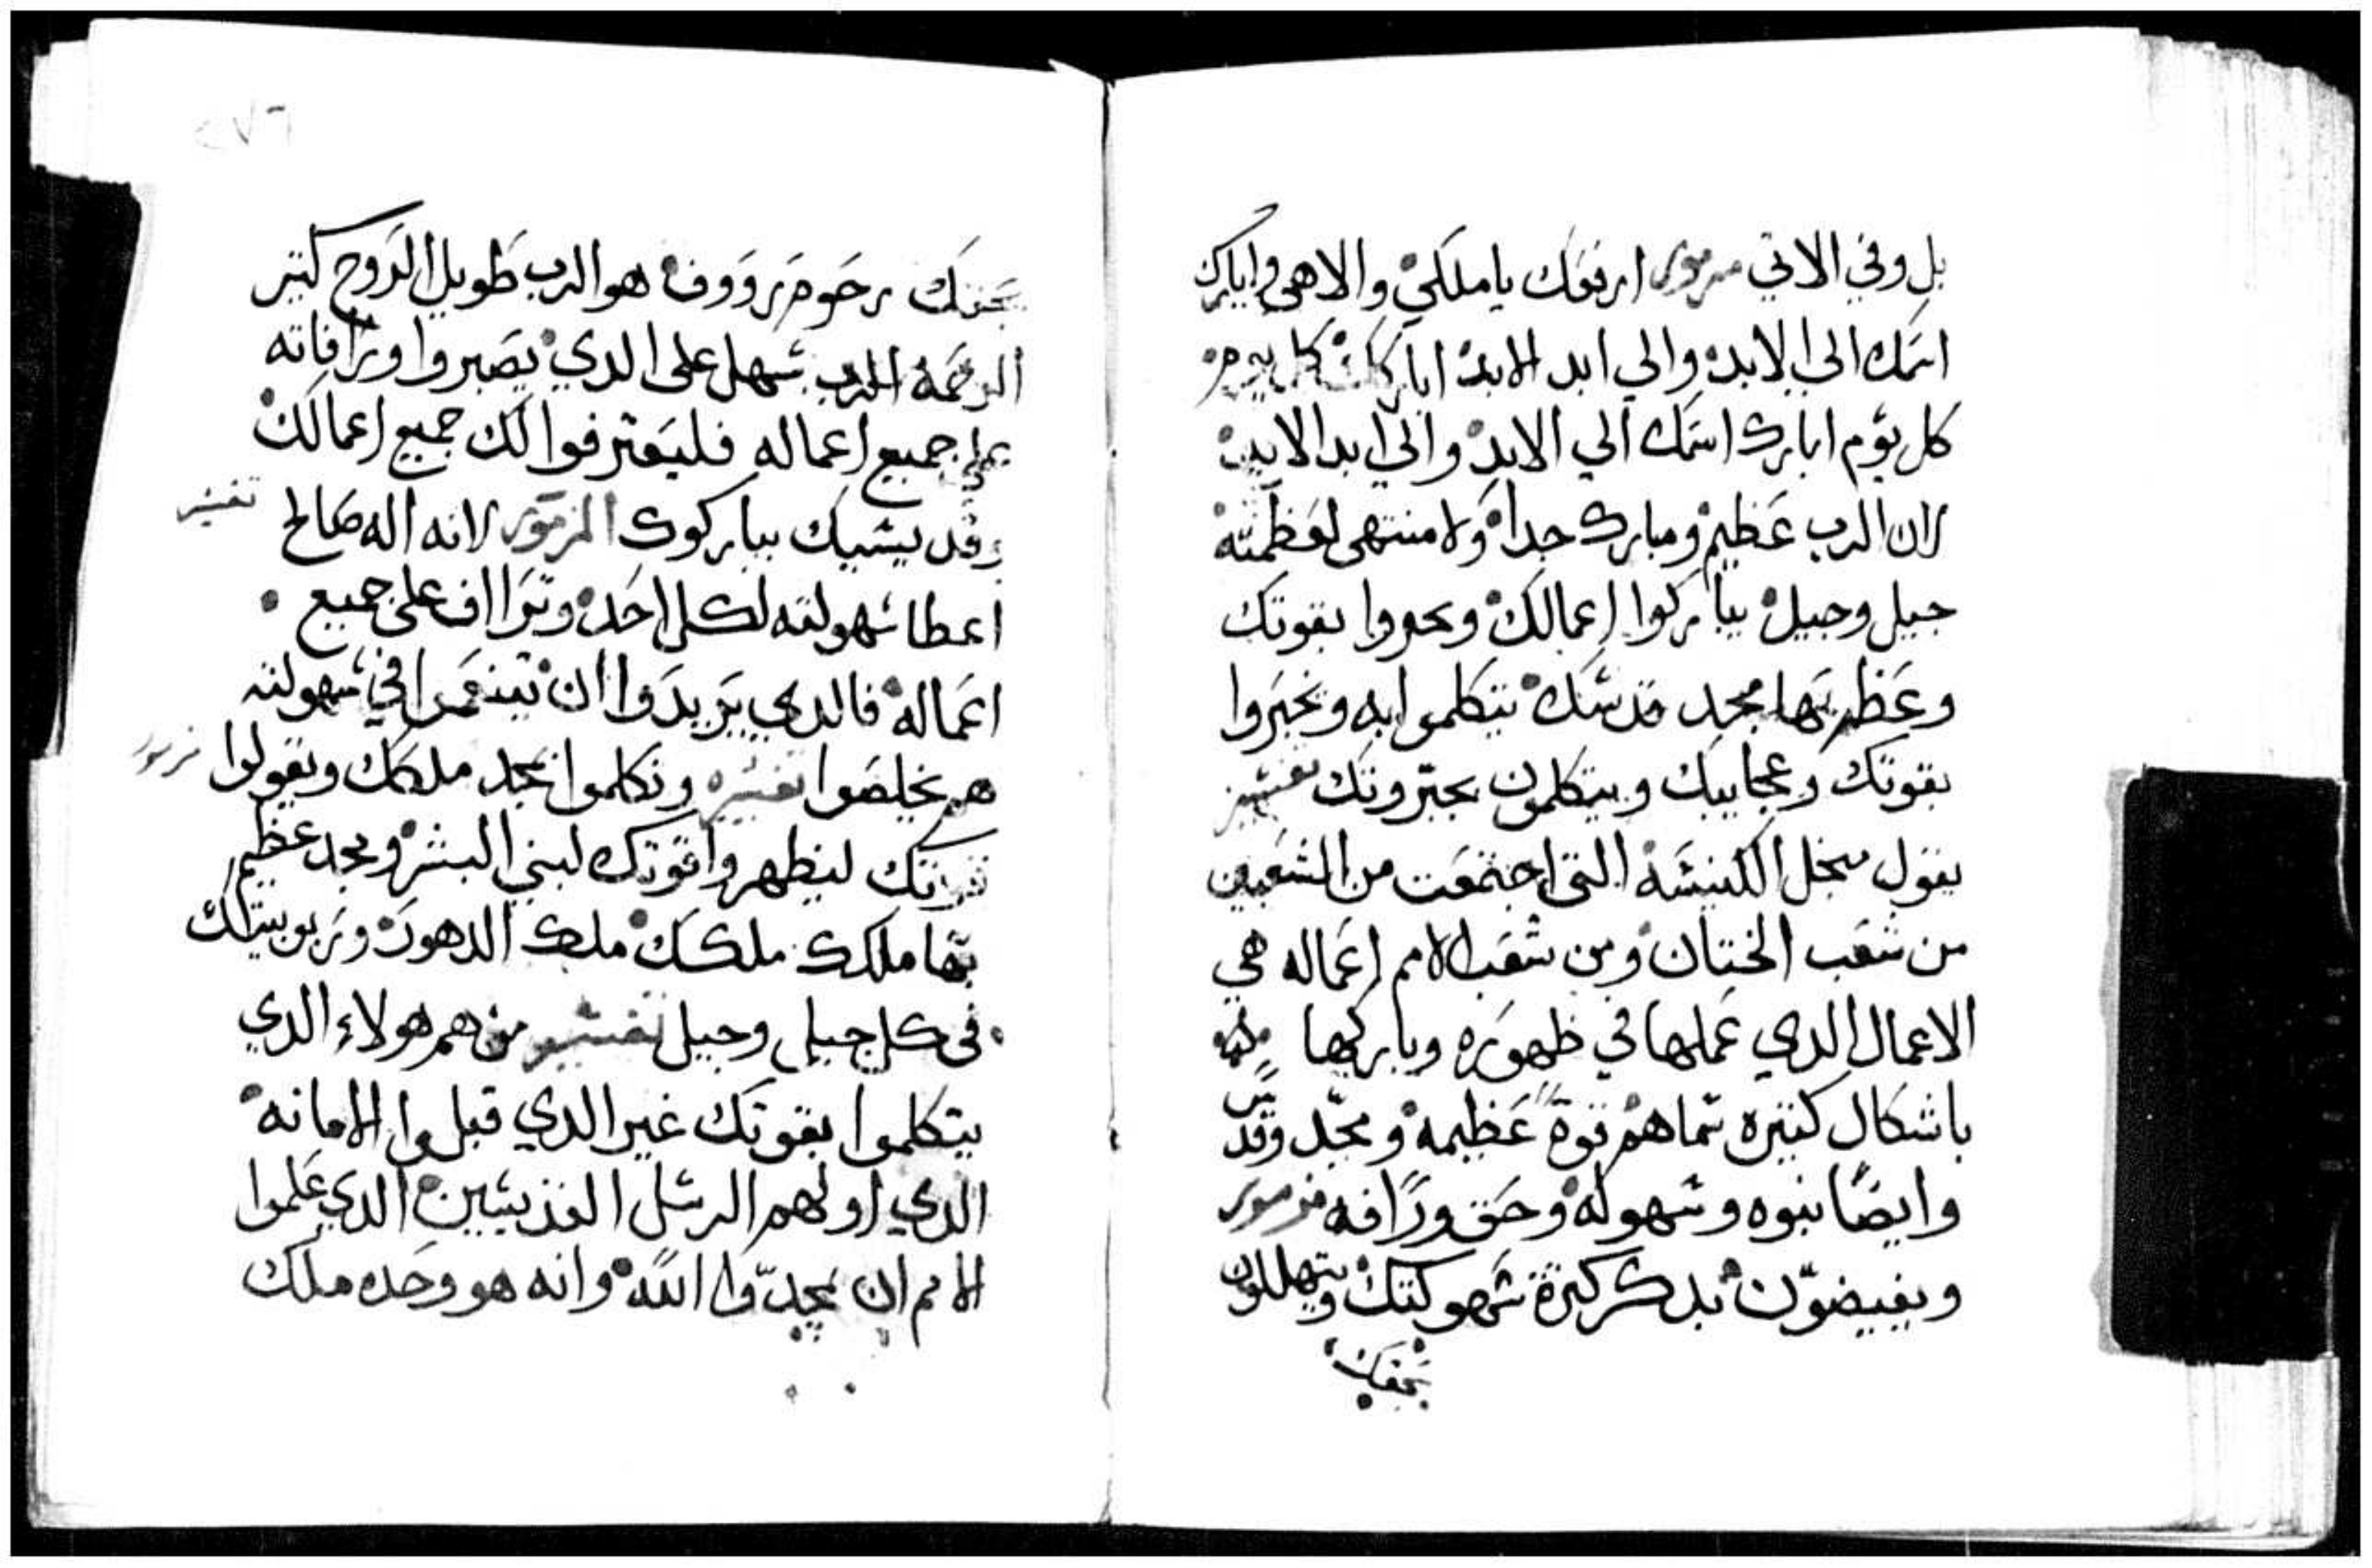 بل وفي الاتي مزمور ارفعك يا ملكي والاهي واباركـ
اسمك الي الابد والي ابد الابد اباركك كل يوم
كل يوم ابارك اسمك الي الابد والي ابد الابد
لان الرب عظيم ومبارك جدا ولا منتهى لعظمته
جيل وجيل يباركوا اعمالك ويخبروا بقوتك
وعظم بها مجد قدسك يتكلموا به ويخبروا
بقوتك وعجايبك ويتكلمون بجبروتك تفسير
يقول سجل الكنيسه التى اجتمعت من الشعبين
من شعب الختان ومن شعب الامم اعماله هي
الاعمال الدي عملها في ظهوره وباركها
باشكال كتيره سماهم قوة عظيمه ومجد وقدس
وايضا بنوه وسهوله وحق ورافه مزمور
ويفيضون بدكر كثرة سهولتك ويتهللون
بحقك
رحوم رووف هو الرب طويل الروح كتير
الرحمه الرب سهل على الدي يصبروا ورافاته
على جميع اعماله فليعترفوا لك جميع اعمالك
وقديسيك يباركوك المزمور لانه اله صالح تفسير
اعطا سهولته لكل احد وتراف على جميع
اعماله فالدي يريدوا ان يتنعموا في سهولته
هم يخلصوا تفسيره وتكلموا بمجد ملكك ويقولوا مزمور
ليظهروا قوتك لبني البشر ومجد عظيم
بها ملكك ملكك ملك الدهور وربوبيتك
في كل جيل وجيل تفسير من هم هولاء الدي
يتكلموا بقوتك غير الدي قبلوا الامانه
الدي اولهم الرسل القديسين الدي علموا
الامم ان يمجدوا الله وانه هو وحده ملك